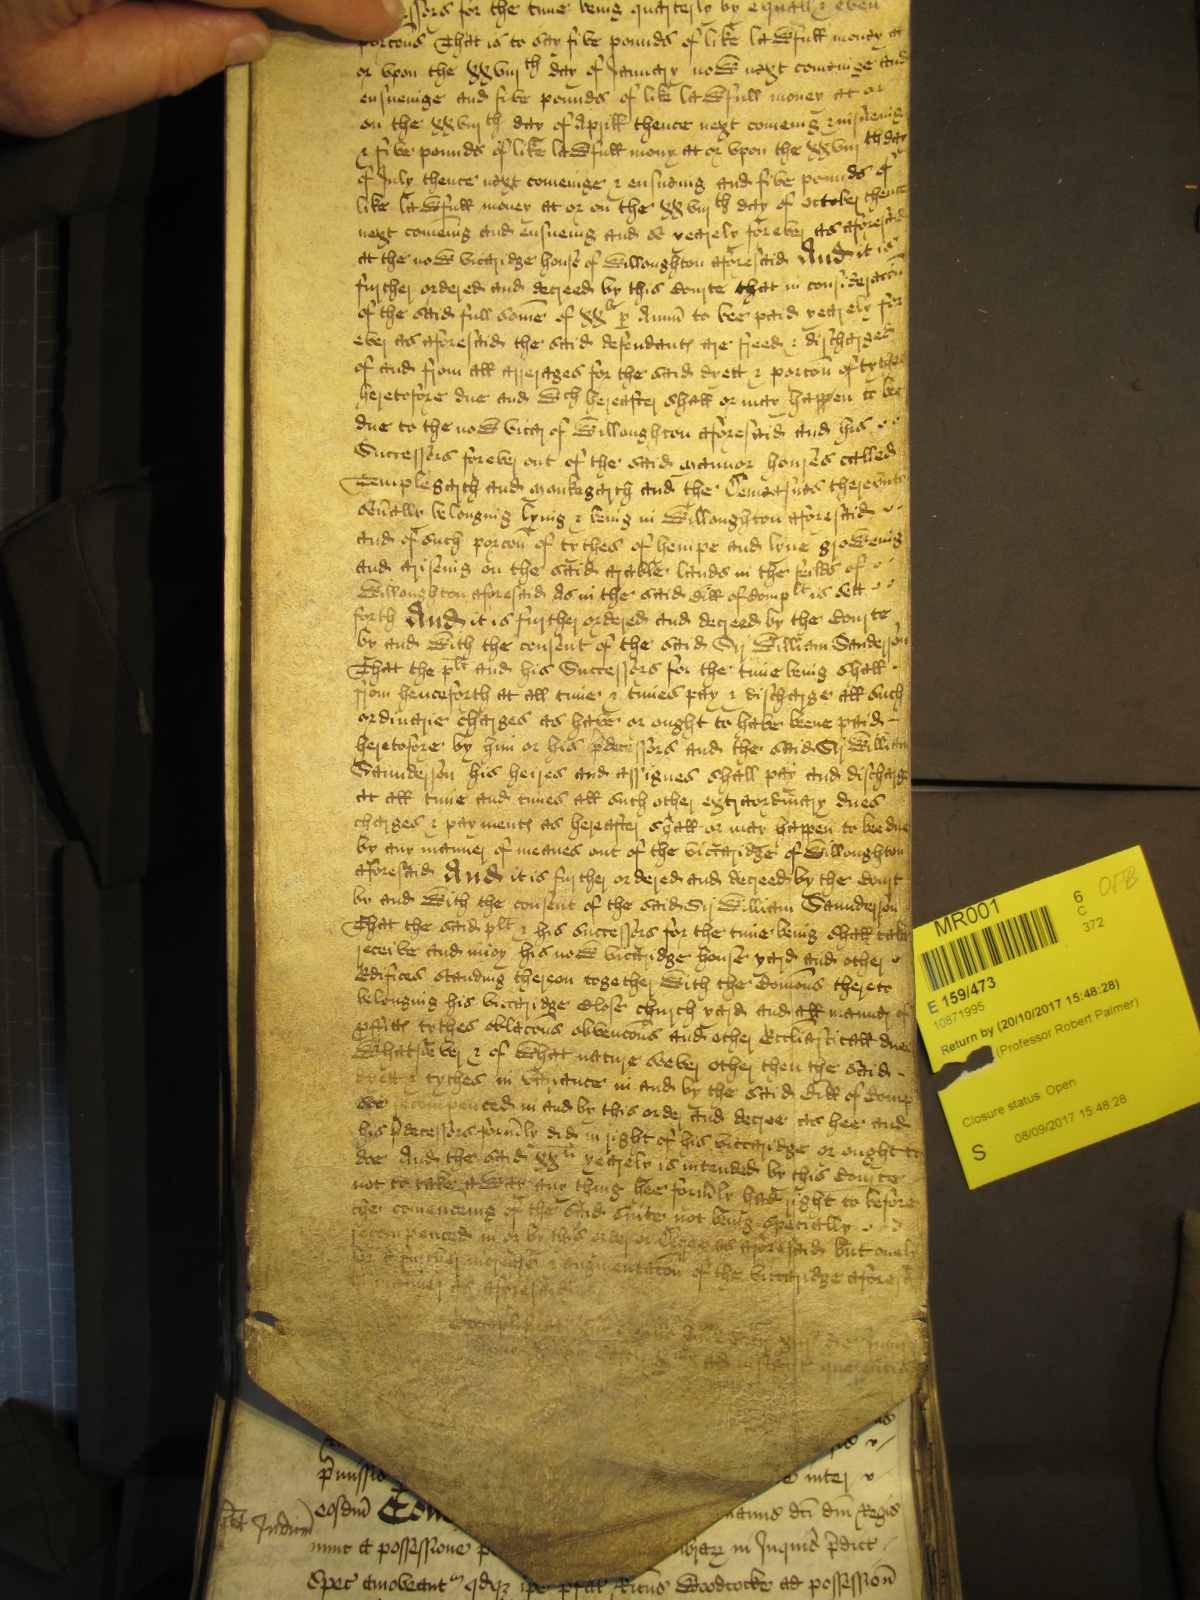 ssors for the time being quarterly by equall & even
porcons That is to say five pounds of like lawfull money at
or upon the xxviii th day of January now next comeinge and
ensueinge and five pounds of like lawfull money at or
on the xxviii th day of Aprill thence next comeing & ensueing
& five pounds of like lawfull mony at or upon the xxviii th day
of July thence next comeinge & ensueing and five pounds of
like lawfull money at or on the xxviii th day of October thence
next comeing and ensueing and so yearely forever as aforesaid
at the now vicaridge house of Willoughton aforesaid And it is
further ordered and decreed by this Courte that in consideracon
of the said full some of xx li p Annu to bee paid yearely for
ever as aforesaid the said defendants are freed & discharged
of and from all arrerages for the said drett & porcon of tythes
heretofore due and wch hereafter shall or may happen to bee
due to the now vicar of Willoughton aforesaid and his
Successors forever out of the said mannor houses called
Templegarth and monkegarth and the Demeasnes thereunto
sevally belonging lying & being in Willoughton aforesaid
and of such porcon of tythes of hempe and lyne groweing
and ariseing on the said arable lands in the feilds of
Willoughton aforesaid As in the said Bill of Complt is sett
forth And it is further ordered and decreed by the Courte
by and with the consent of the said Sr William Sanderson
That the plt and his Successors for the time being shall
from henceforth at all time & times pay & discharge all such
ordinarie charges as have or ought to have beene paid
heretofore by him or his pdecessors and the said Sr William
Saunderson his heires and assignes shall pay and discharge
at all time and times all such other extraordinary dues
charges & payments as hereafter shall or may happen to bee due
by any manner of meanes out of the viccaridge of Willoughton
aforesaid And it is further ordered and decreed by the Court
by and with the consent of the said Sr William Saunderson
That the said plt & his successors for the time being shall take
receive and injoy his now viccaridge house yard and other
Edifices standing thereon together with the Comons thereto
belonging his viccaridge Close church yard and all manner of
pffitts tythes oblacons obvencons and other Eccliasticall dues
whatsoever & of what nature soever other then the said
drett & tythes in variance in and by the said Bill of Comp
soe recompenced in and by this order and decree as hee and
his pdecessors formly did in right of his viccaridge or ought to
doe And the said xx li yearely is intended by this Courte
not to take away any thing hee formly had right to before
the comenceing of the said suite not being specially
recompenced in or by this order or decree as aforesaid but onely
for a further increase & augmentacon of the viccaridge aforesd
manner as aforesaid
MR001
6
C
372
OFB
E 159/473
10871995
Return by (20/10/2017 15:48:28)
(Professor Robert Palmer)
Closure status: Open
S 08/09/2017 15:48:28
pmissis
e inter
eosdm
manus dci dni Regis
nunc et possessione
in Inquis pdict
spec amoveant qdqz ipe pfat Ricus Woodcocke ad possession